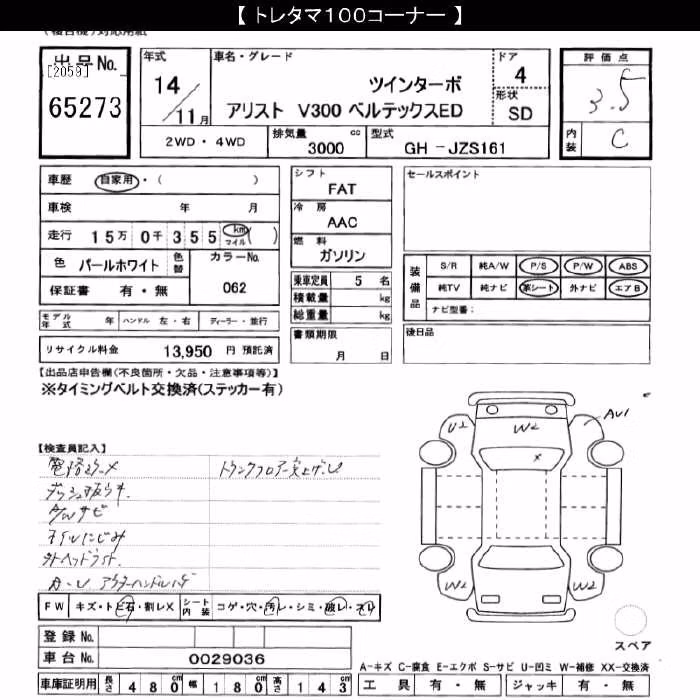 【 トレタマ100コーナー 】
(複合機)対応用紙
出品No.
[2059]
65273
年式
14/11月
車名・グレード
ツインターボ
アリスト V300 ベルテックスED
ドア
4
形状
SD
評価点
3.5
内装
C
2WD・4WD
排気量
3000
cc
型式
GH - JZS161
車歴
自家用・( )
車検 年 月
走行 15万 0千 355 km マイル ( )
色 パールホワイト
色替
カラーNo.
062
保証書 有・無
シフト
FAT
冷房
AAC
燃料
ガソリン
乗車定員 5 名
積載量 kg
総重量 kg
書類期限
月 日
セールスポイント
装備品
S/R 純A/W P/S P/W ABS
純TV 純ナビ 革シート 外ナビ エアB
ナビ型番:
後日品
モデル年式 年 ハンドル 左・右 ディーラー・並行
リサイクル料金 13,950 円 預託済
【出品店申告欄(不良箇所・欠品・注意事項等)】
※タイミングベルト交換済(ステッカー有)
【検査員記入】
トランクフロアー突上ゲレ
A/Wサビ
オイルにじみ
外ヘッドライト
U2
W2
AU1
×
W2
W2
FW キズ・トビ石・割レX
シート内装 コゲ・穴・汚レ・シミ・破レ・スレ
登録No.
車台No. 0029036
車庫証明用 長さ 480 cm 幅 180 cm 高さ 143 cm
スペア
A-キズ C-腐食 E-エクボ S-サビ U-凹ミ W-補修 XX-交換済
工具 有・無 ジャッキ 有・無